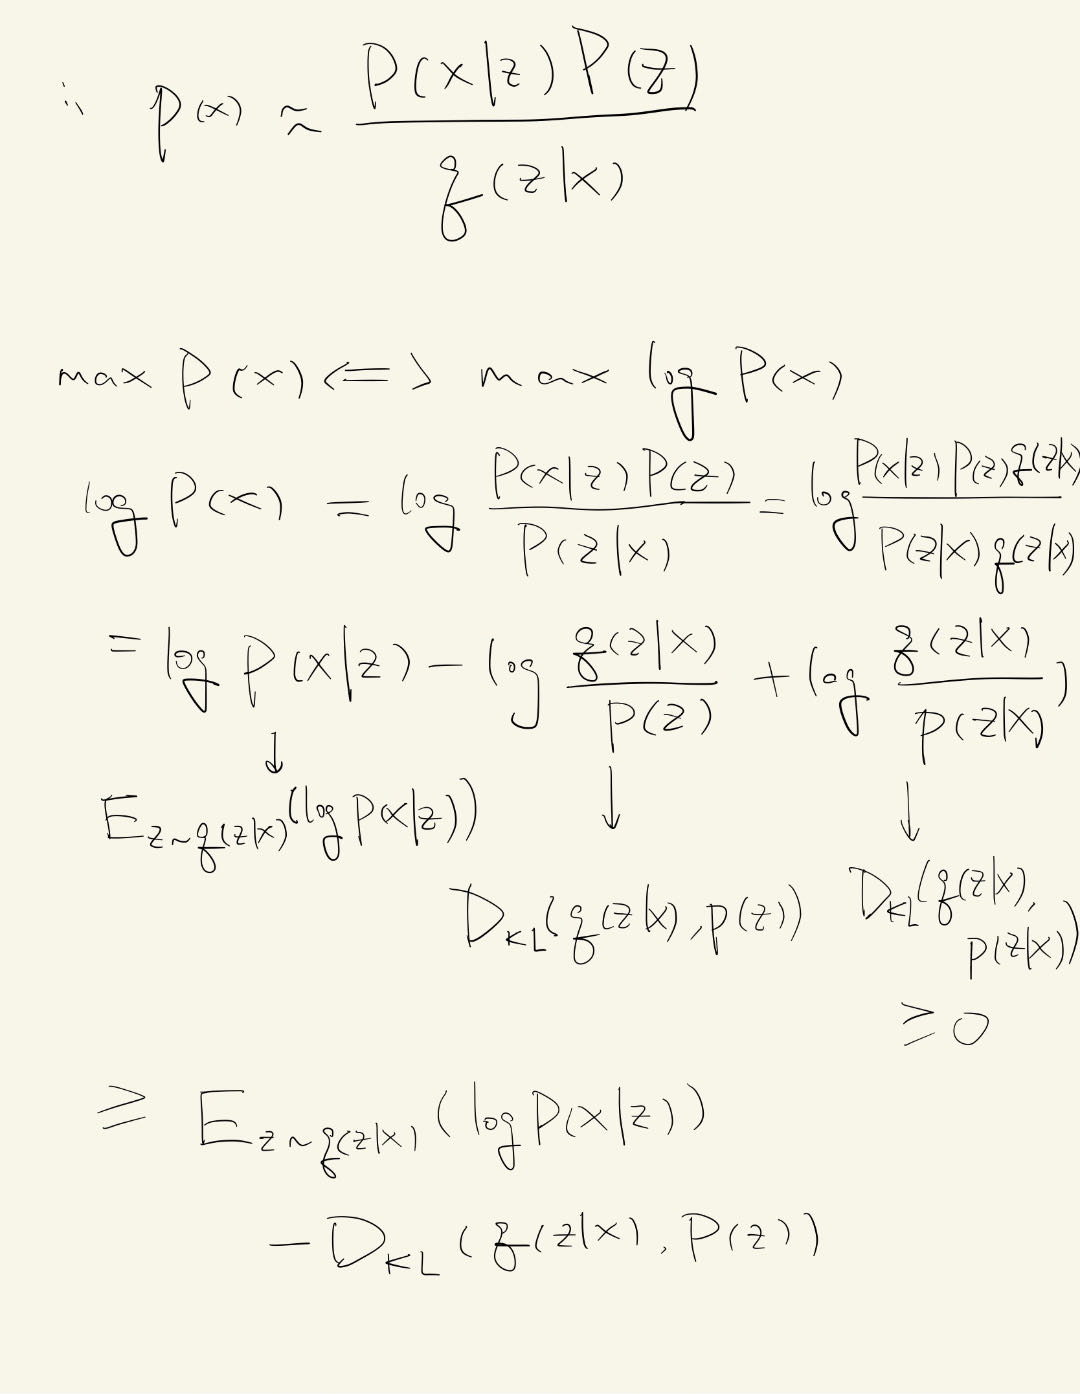 ∴ p(x) ≈ P(x|z) P(z) / q(z|x)
max P(x) <=> max log P(x)
log P(x) = log P(x|z) P(z) / P(z|x) = log P(x|z) P(z) q(z|x) / P(z|x) q(z|x)
= log P(x|z) − log q(z|x) / P(z) + log q(z|x) / p(z|x) )
↓ ↓ ↓
E z~q(z|x) (log P(x|z))
D KL (q(z|x), p(z)) D KL (q(z|x), p(z|x))
≥ 0
≥ E z~q(z|x) (log P(x|z))
− D KL (q(z|x), P(z))